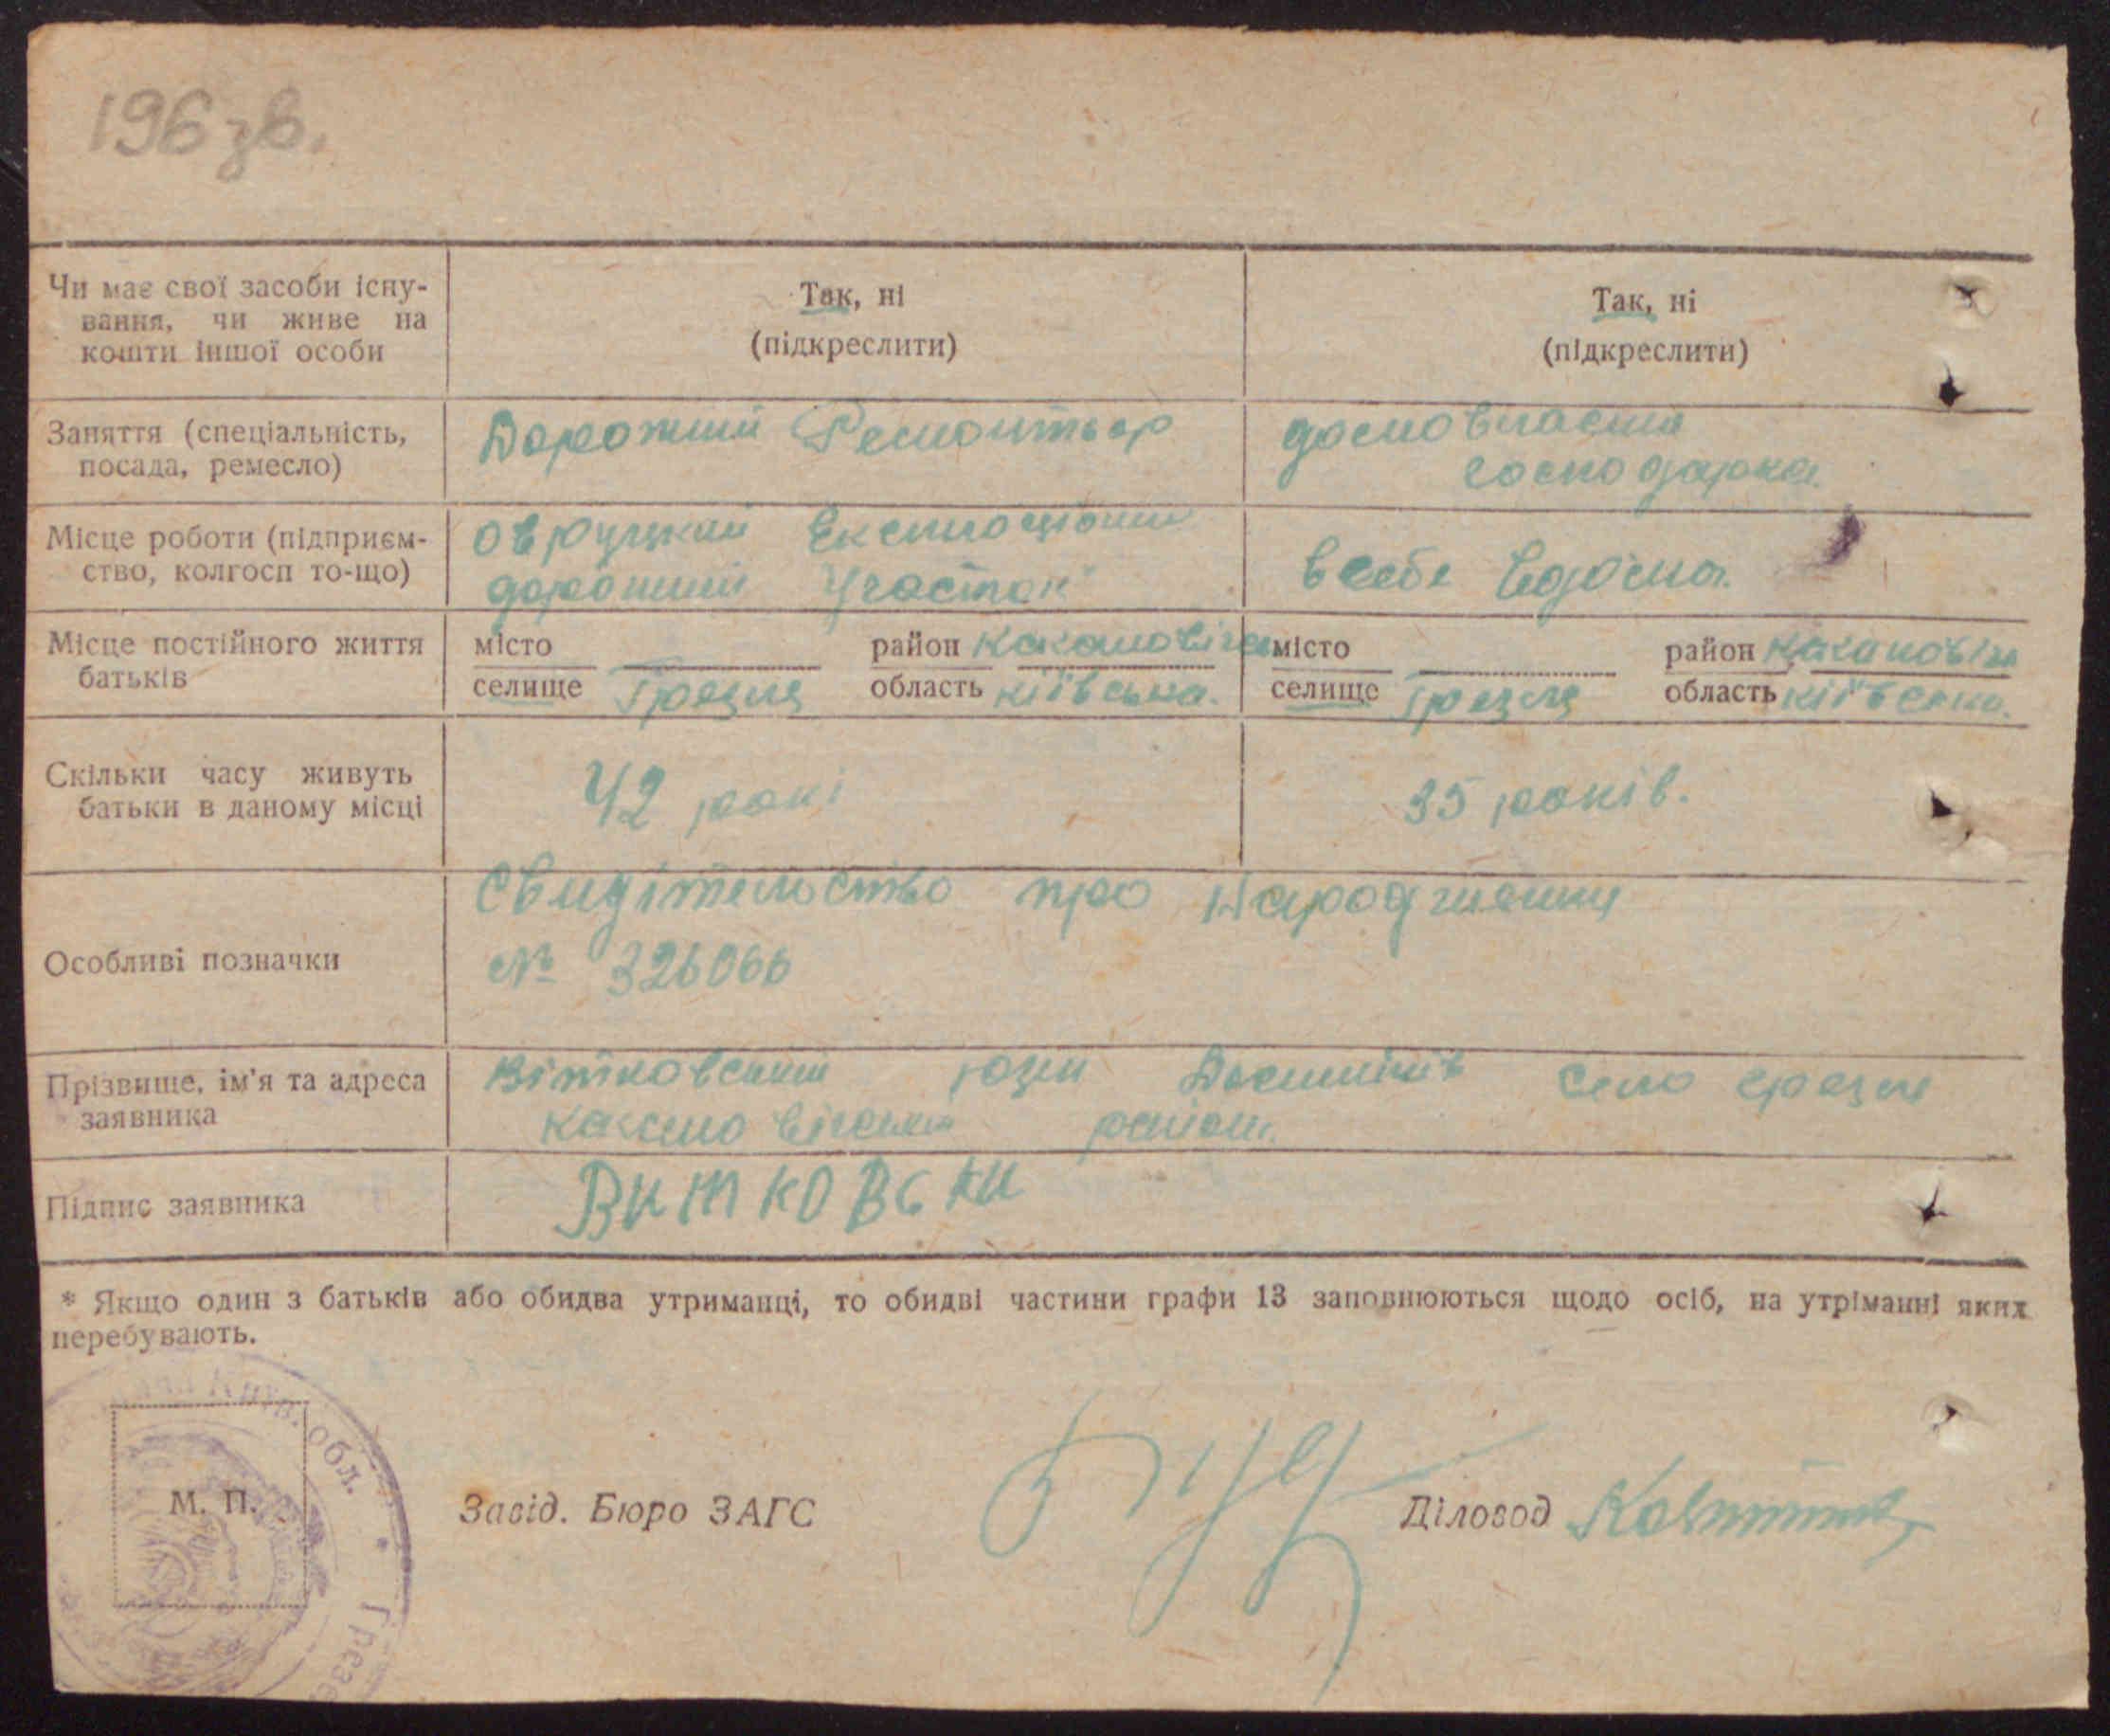 196 зв.
Чи має свої засоби існу-
вання, чи живе на
кошти іншої особи
Так, ні
(підкреслити)
Так, ні
(підкреслити)
Заняття (спеціальність,
посада, ремесло)
Дорожний Ремонтьор
домовласна
господарка.
Місце роботи (підприєм-
ство, колгосп то-що)
Овруцкий
дорожний Участок
в себе вдома.
Місце постійного життя
батьків
місто
селище Грезля
район
область київська.
місто
селище Грезля
район
область київська.
Скільки часу живуть
батьки в даному місці
42 рокі
35 років.
Особливі позначки
Свидітельство про Народження
№ 326066
Прізвище, ім'я та адреса
заявника
Вітковський Юзи село грезля
район.
Підпис заявника
Витковски
* Якщо один з батьків або обидва утриманці, то обидві частини графи 13 заповнюються щодо осіб, на утріманні яких
перебувають.
Київ. обл. * Грезл
М. П.
Завід. Бюро ЗАГС
Діловод